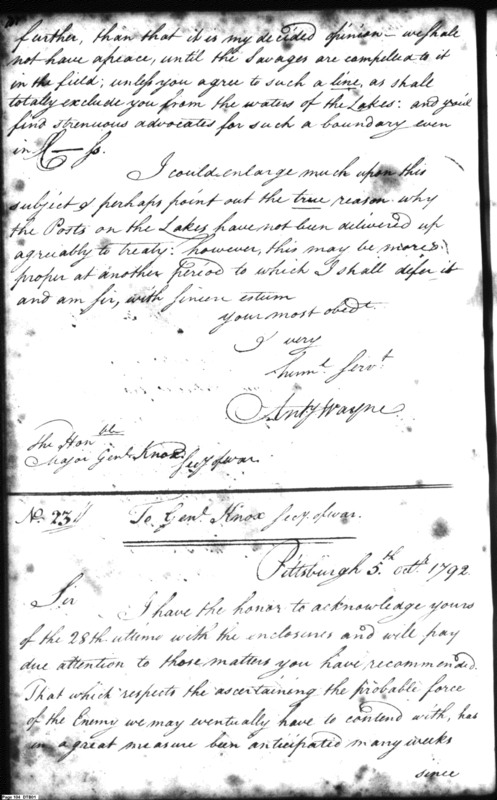 further, than that it is my decided opinion - we shall
not have a peace, until the Savages are compelled to it
in the field; unless you agree to such a line, as shall
totally exclude you from the waters of the Lakes: and you'd
find strenuous advocates for such a boundary even
in
I could enlarge much upon this
subject & perhaps point out the true reason why
the Posts on the Lakes have not been delivered up
agreeably to treaty: however, this may be more
proper at another period to which I shall defer it
and am Sir, with sincere esteem
your most obedt
& very
Huml Servt
Anty Wayne
The Honble
Major Genl Knox Secy of war.
No. 23
To Genl Knox Secy of war.
Pittsburgh 5th Octr 1792
Sir
I have the honor to acknowledge yours
of the 28th ultimo with the enclosures and will pay
due attention to those matters you have recommended.
That which respects the ascertaining the probable force
of the Enemy we may eventually have to contend with, has
in a great measure been anticipated many weeks
since